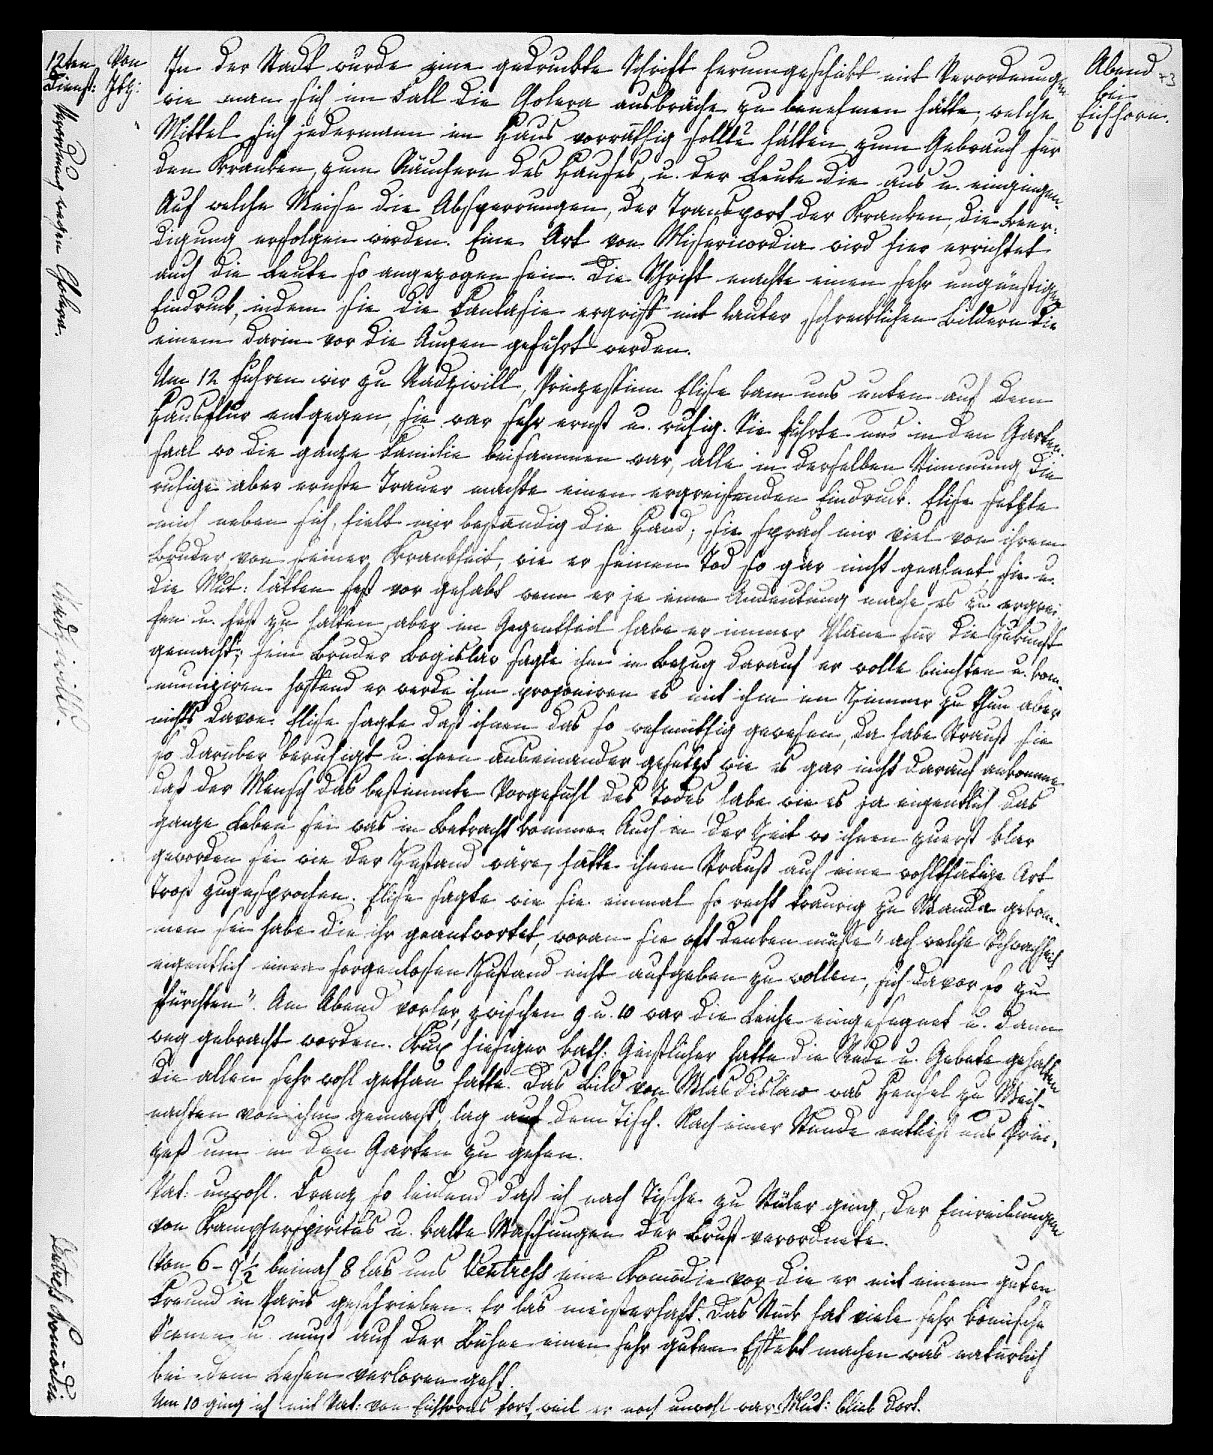 12ten Von
Dienst: Itz:
Abend
bei
Eichhorn.
Verordnung wegen Cholera.
In der Stadt wurde eine gedruckte Schrift herumgeschikt mit Verordnungen
wie man sich im Fall die Colera ausbräche zu benehmen hätte, welche
Mittel sich jedermann im Haus vorräthig sollte halten zum Gebrauch für
den Kranken, zum Räuchern des Hauses, u. der Leute die aus u. eingingen.
Auf welche Weise die Absperrungen, der Transport der Kranken, die Beer-
digung erfolgen würden. Eine Art von Misericordia wird hier errichtet
auch die Leute so angezogen sein. Die Schrift machte einen sehr ungünstigen
Eindruck, indem sie die Fantasie ergriff mit lauter schrecklichen Bildern die
einem darin vor die Augen geführt werden.
Um 12 fuhren wir zu Radziwill, Prinzessinn Elise kam uns unten auf dem
Hausflur entgegen, sie war sehr ernst u. ruhig. Sie führte uns in den Garten-
saal wo die ganze Familie beisammen war, alle in derselben Stimmung die
ruhige aber ernste Trauer machte einen ergreifenden Eindruck. Elise setzte
mich neben sich, hielt mir beständig die Hand; sie sprach mir viel von ihrem
Bruder von seiner Krankheit, wie er seinen Tod so gar nicht geahnet, sie u.
die Mut: hätten fest vor gehabt wenn er je eine Andeutung mache es zu ergrei-
fen u. fest zu halten, aber im Gegentheil habe er immer Pläne für die Zukunft
gemacht; sein Bruder Bogislav sagte ihm in Bezug darauf er wolle beichten u. kom-
muniziren hoffend er werde ihm proponiren es mit ihm im Zimmer zu thun aber
nichts davon. Elise sagte daß ihnen das so wehmüthig gewesen, da habe Strauß sie
so darüber beruhigt u. ihnen auseinander gesetzt wie es gar nicht darauf ankomme
daß der Mensch das bestimmte Vorgefühl des Todes habe wie es ja eigentlich das
ganze Leben sei was in Betracht komme. Auch in der Zeit wo ihnen zuerst klar
geworden sei wie der Zustand wäre, hätte ihnen Strauß auf eine wohlthätige Art
Trost zugesprochen. Elise sagte wie sie einmal so recht traurig zu Wanda gekom-
men sei habe die ihr geantwortet, woran sie oft denken müsse "ach welche Schwachheit
eigentlich einen sorgenlosen Zustand nicht aufgeben zu wollen, sich davor so zu
fürchten". Am Abend vorher, zwischen 9 u. 10 war die Leiche eingesegnet u. dann
weg gebracht worden. hiesiger kath: Geistlicher hatte die Rede u. Gebete gehalten
die allen sehr wohl gethan hatte. Das Bild von Wladislaw was Hensel zu Weih-
nachten von ihm gemacht, lag auf dem Tisch. Nach einer Stunde entließ uns Prin-
zeß um in den Garten zu gehen.
Radziwill.
Vat: unwohl. Franz so leidend daß ich nach Tische zu Stüler ging, der Einreibungen
von Kampherspiritus u. kalte Waschungen der Brust verordnete.
Von 6 - 7½ beinah 8 las uns Ventress eine Komödie vor die er mit einem guten
Freund in Paris geschrieben. Er las meisterhaft. Das Stück hat viele sehr komische
Scenen u. muß auf der Bühne einen sehr guten Effekt machen was natürlich
bei dem Lesen verloren geht.
Um 10 ging ich mit Vat: von Eichhorns fort, weil er noch unwohl war. Mut: blieb dort.
Ventress Komödie